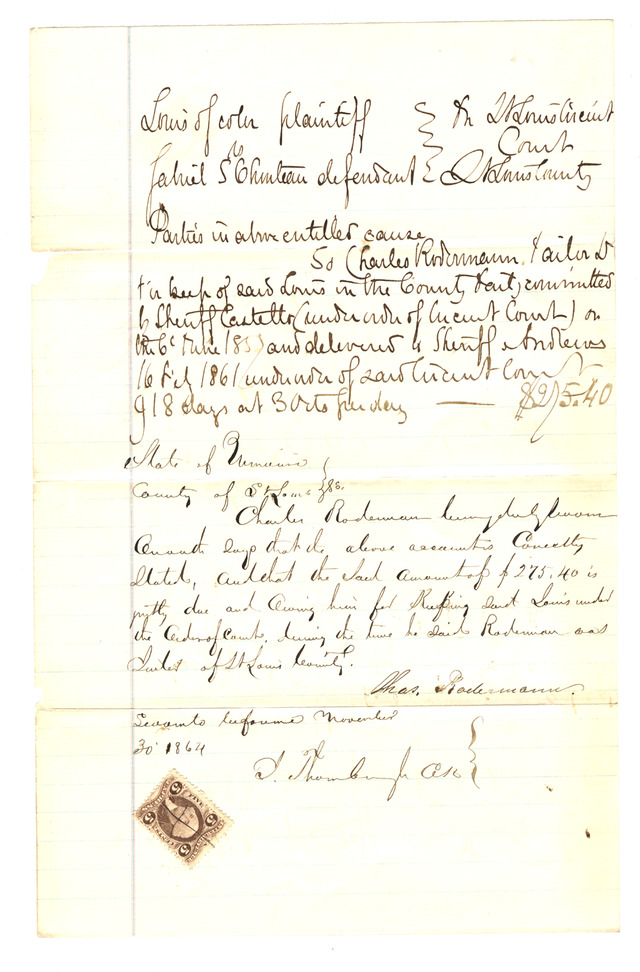 Louis of color plaintiff } In St Louis Circuit
vs } Court
Gabriel S Chouteau defendant } St Louis County
Parties in above entitled cause
To Charles Rodermann, Jailor Dr
For keep of said Louis in the County Jail, committed
by Sheriff Castello (under order of Circuit Court) on
the 6th June 185 and delivered to Sheriff Andrews
16 1861 under order of said Circuit Court
918 days at 30 cts per day — $275.40
State of Missouri }
County of St Louis } ss.
Charles Roderman being duly sworn
on oath says that the above account is Correctly
Stated, and that the Said Amount of $275.40 is
justly due and Owing him for Keeping said Louis under
the Order of Court, during the time he said Roderman was
Jailer of St Louis County.
Chas. Rodermann.
Sworn to before me November
30 1864
S. Thornburgh Clk }
5
5
5
5
CENTS